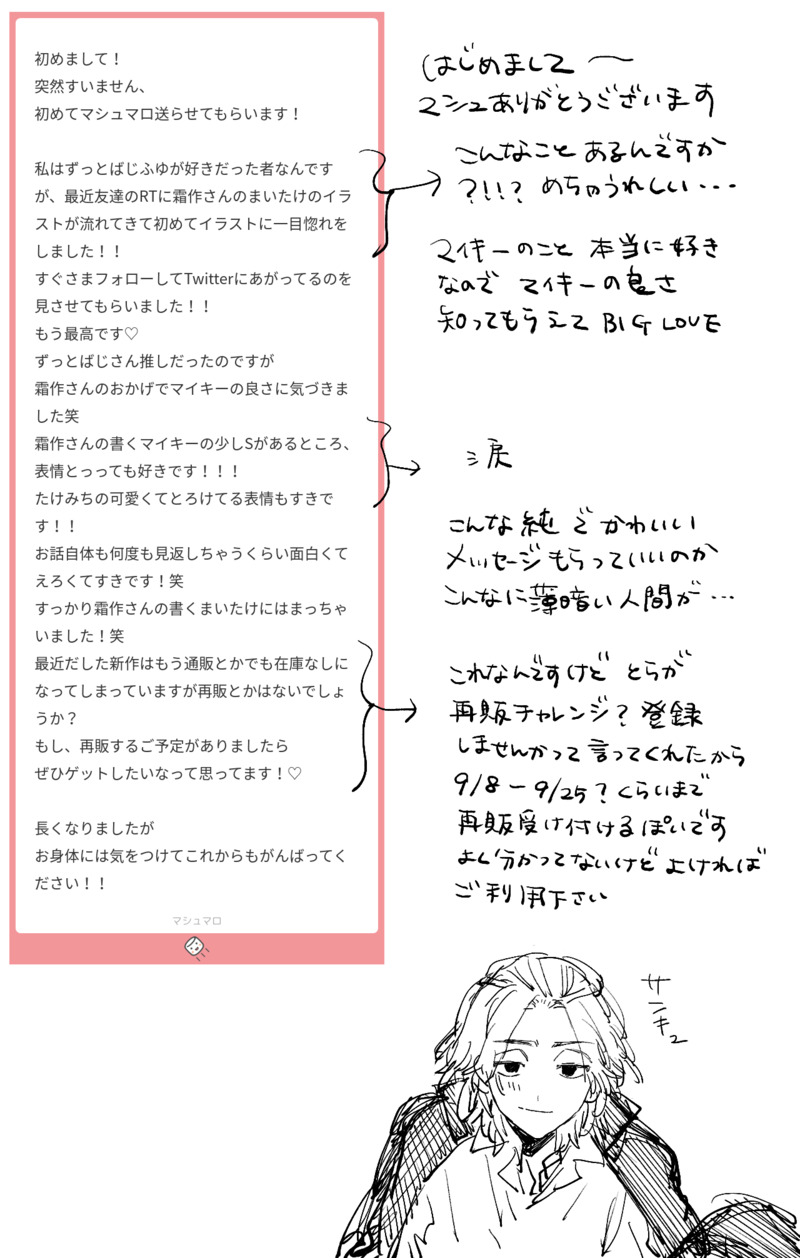 初めまして！
突然すいません、
初めてマシュマロ送らせてもらいます！
私はずっとばじふゆが好きだった者なんです
が、最近友達のRTに霜作さんのまいたけのイラ
ストが流れてきて初めてイラストに一目惚れを
しました！！
すぐさまフォローしてTwitterにあがってるのを
見させてもらいました！！
もう最高です♡
ずっとばじさん推しだったのですが
霜作さんのおかげでマイキーの良さに気づきま
した笑
霜作さんの書くマイキーの少しSがあるところ、
表情とっっても好きです！！！
たけみちの可愛くてとろけてる表情もすきで
す！！
お話自体も何度も見返しちゃうくらい面白くて
えろくてすきです！笑
すっかり霜作さんの書くまいたけにはまっちゃ
いました！笑
最近だした新作はもう通販とかでも在庫なしに
なってしまっていますが再販とかはないでしょ
うか？
もし、再販するご予定がありましたら
ぜひゲットしたいなって思ってます！♡
長くなりましたが
お身体には気をつけてこれからもがんばってく
ださい！！
マシュマロ
はじめまして〜
マシュありがとうございます
こんなことあるんですか
?!!? めちゃうれしい・・・
マイキーのこと 本当に好き
なので マイキーの良さ
知ってもらえて BIG LOVE
涙
こんな純でかわいい
メッセージもらっていいのか
こんなに薄暗い人間が…
これなんですけど とらが
再販チャレンジ? 登録
しませんかって言ってくれたから
9/8ー9/25? くらいまで
再販受け付けるぽいです
よく分かってないけど よければ
ご利用下さい
サンキュ